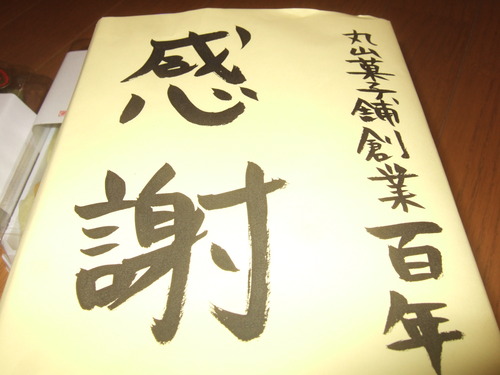 丸山菓子舗創業百年
感謝